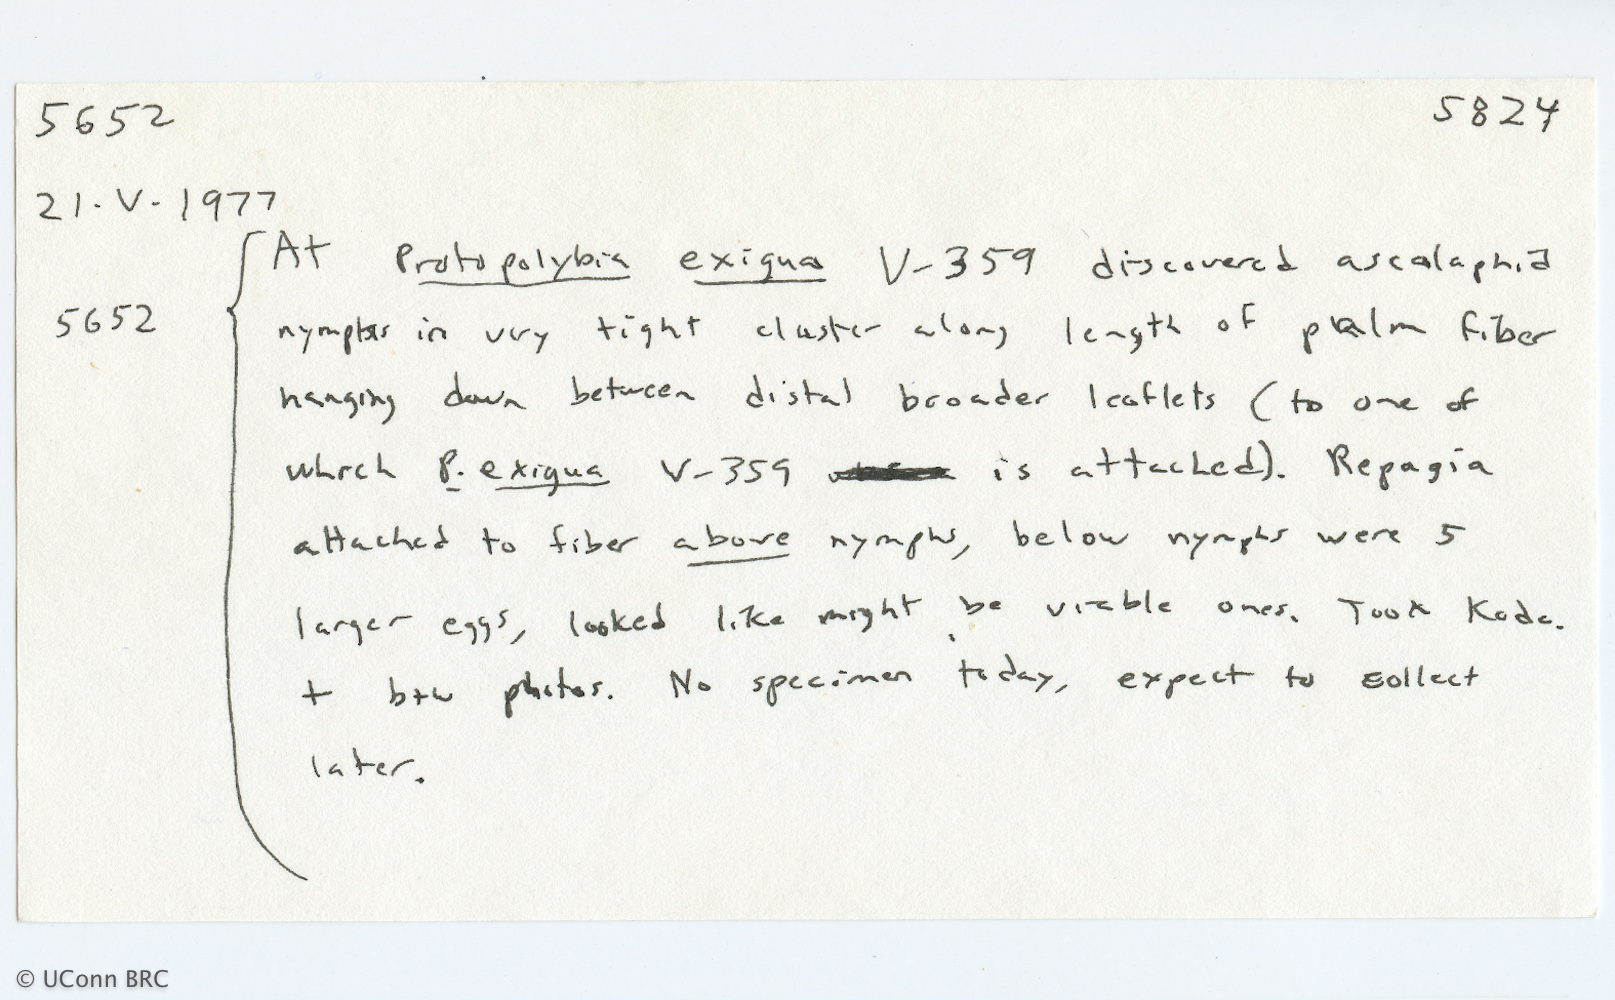 5652 5824
21·V·1977
At Protopolybia exigua V-359 discovered ascalaphid
5652 nymphs in very tight cluster along length of palm fiber
hanging down between distal broader leaflets (to one of
which P. exigua V-359 is attached). Repagia
attached to fiber above nymphs, below nymphs were 5
larger eggs, looked like might be viable ones. Took Koda.
+ b+w photos. No specimen today, expect to collect
later.
© UConn BRC